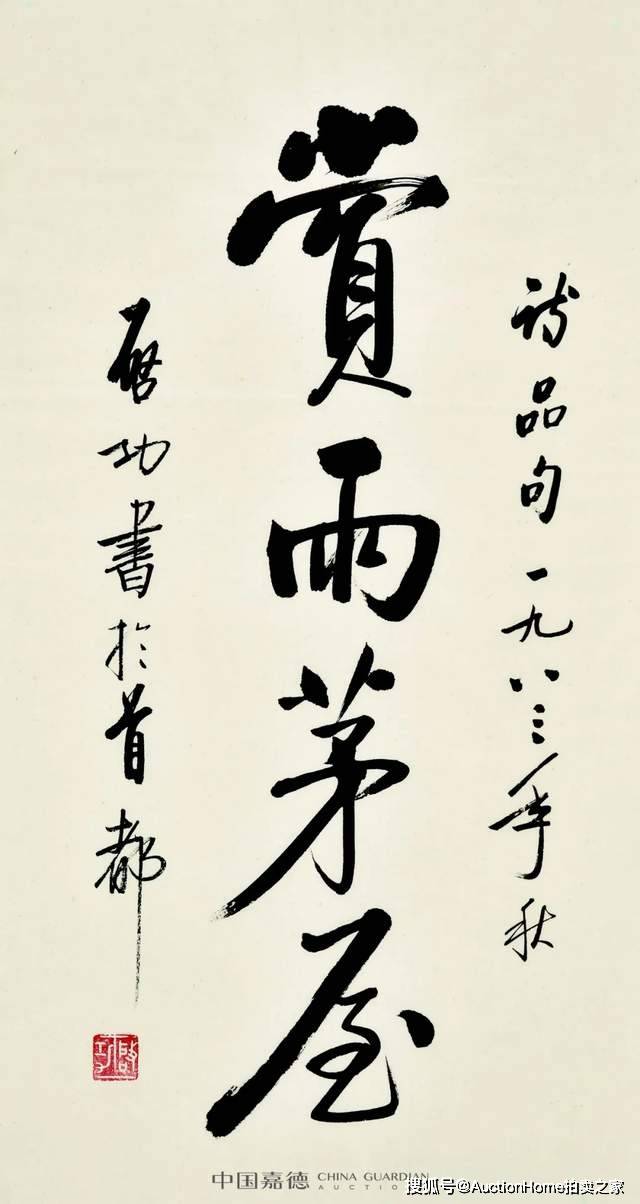 詩品句一九八三年秋
賞雨茅屋
啟功書於首都
啟功
中国嘉德 CHINA GUARDIAN
AUCTIONS
搜狐号@AuctionHome拍卖之家